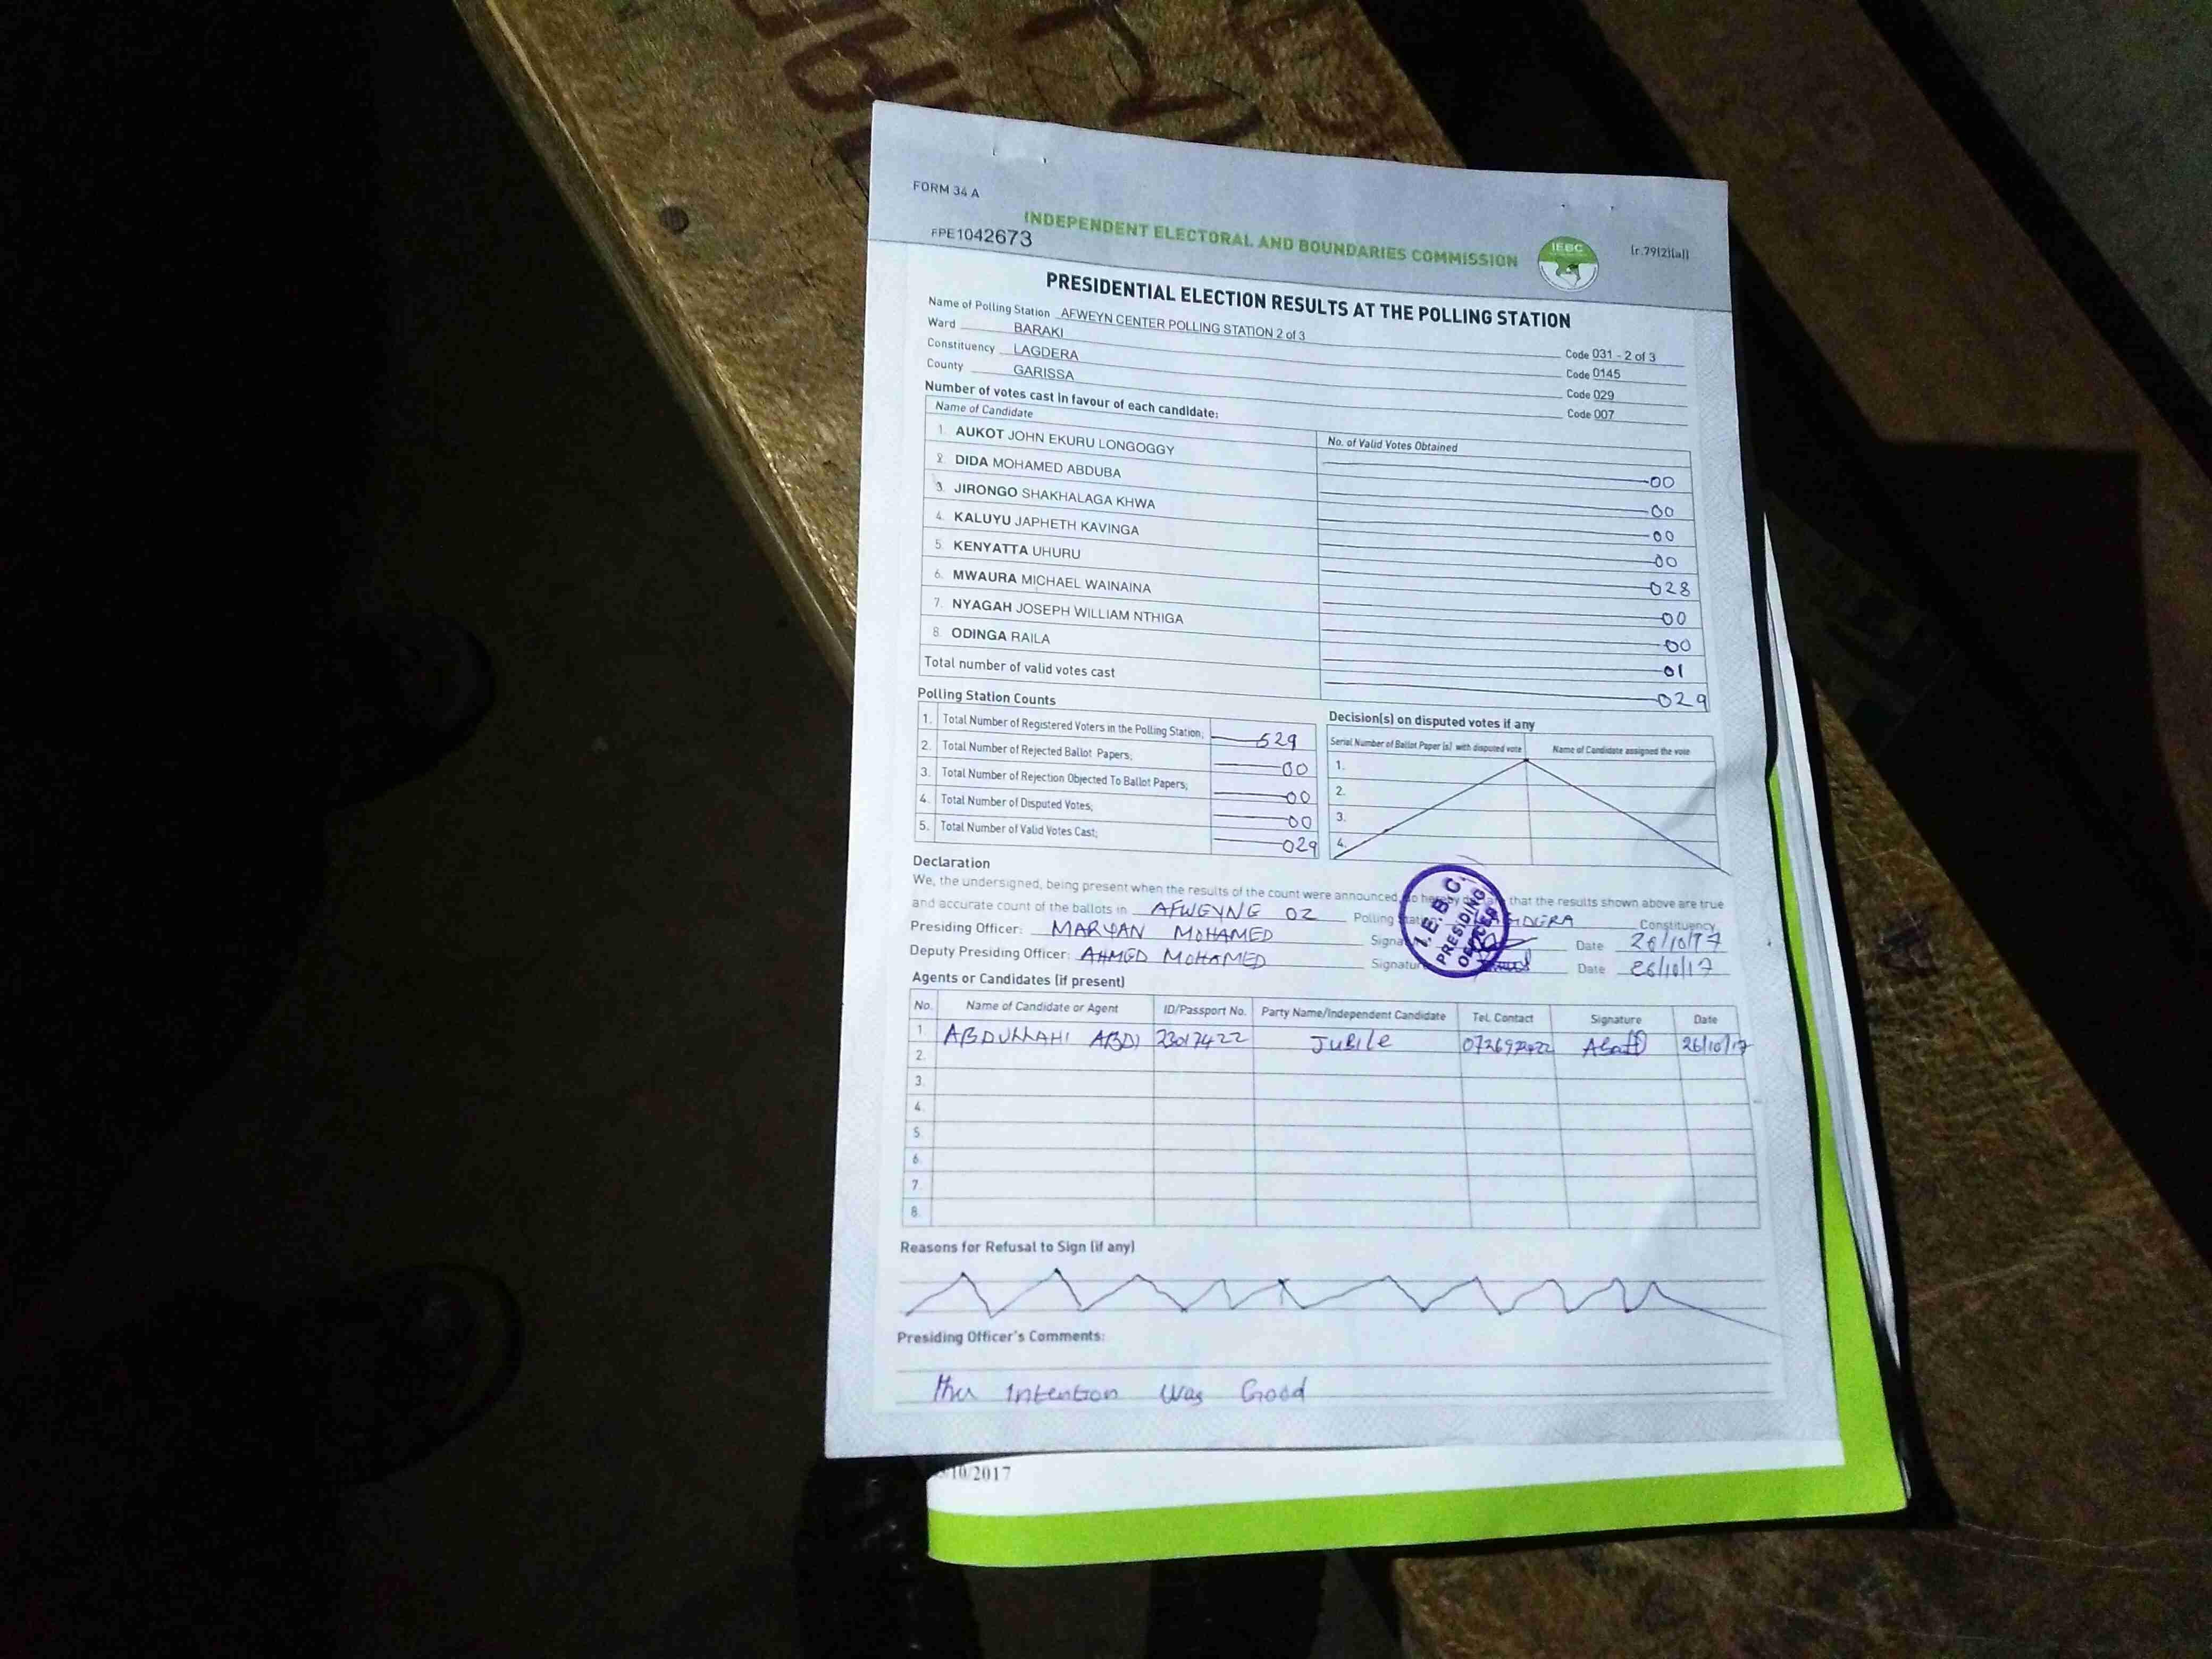 FORM 34 A
INDEPENDENT ELECTORAL AND BOUNDARIES COMMISSION
IEBC
(r.79(2)(a))
FPE1042673
PRESIDENTIAL ELECTION RESULTS AT THE POLLING STATION
Name of Polling Station AFWEYN CENTER POLLING STATION 2 of 3 Code 031 - 2 of 3
Ward BARAKI Code 0145
Constituency LAGDERA Code 029
County GARISSA Code 007
Number of votes cast in favour of each candidate:
Name of Candidate No. of Valid Votes Obtained
1. AUKOT JOHN EKURU LONGOGGY 00
2. DIDA MOHAMED ABDUBA 00
3. JIRONGO SHAKHALAGA KHWA 00
4. KALUYU JAPHETH KAVINGA 00
5. KENYATTA UHURU 028
6. MWAURA MICHAEL WAINAINA 00
7. NYAGAH JOSEPH WILLIAM NTHIGA 00
8. ODINGA RAILA 01
Total number of valid votes cast 029
Polling Station Counts
1. Total Number of Registered Voters in the Polling Station; 529
2. Total Number of Rejected Ballot Papers; 00
3. Total Number of Rejection Objected To Ballot Papers; 00
4. Total Number of Disputed Votes; 00
5. Total Number of Valid Votes Cast; 029
Decision(s) on disputed votes if any
Serial Number of Ballot Paper (s) with disputed vote Name of Candidate assigned the vote
1.
2.
3.
4.
Declaration
We, the undersigned, being present when the results of the count were announced, do hereby declare that the results shown above are true
and accurate count of the ballots in AFWEYNE 02 Polling Station LAGDERA Constituency
Presiding Officer: MARYAN MOHAMED Signature Date 26/10/17
Deputy Presiding Officer: AHMED MOHAMED Signature Date 26/10/17
I.E.B.C.
PRESIDING
OFFICER
Agents or Candidates (if present)
No. Name of Candidate or Agent ID/Passport No. Party Name/Independent Candidate Tel. Contact Signature Date
1 ABDULLAHI ABDI 23017422 JUBILE 26/10/17
2.
3.
4.
5.
6.
7.
8.
Reasons for Refusal to Sign (if any)
Presiding Officer's Comments:
Intention was Good
10/2017